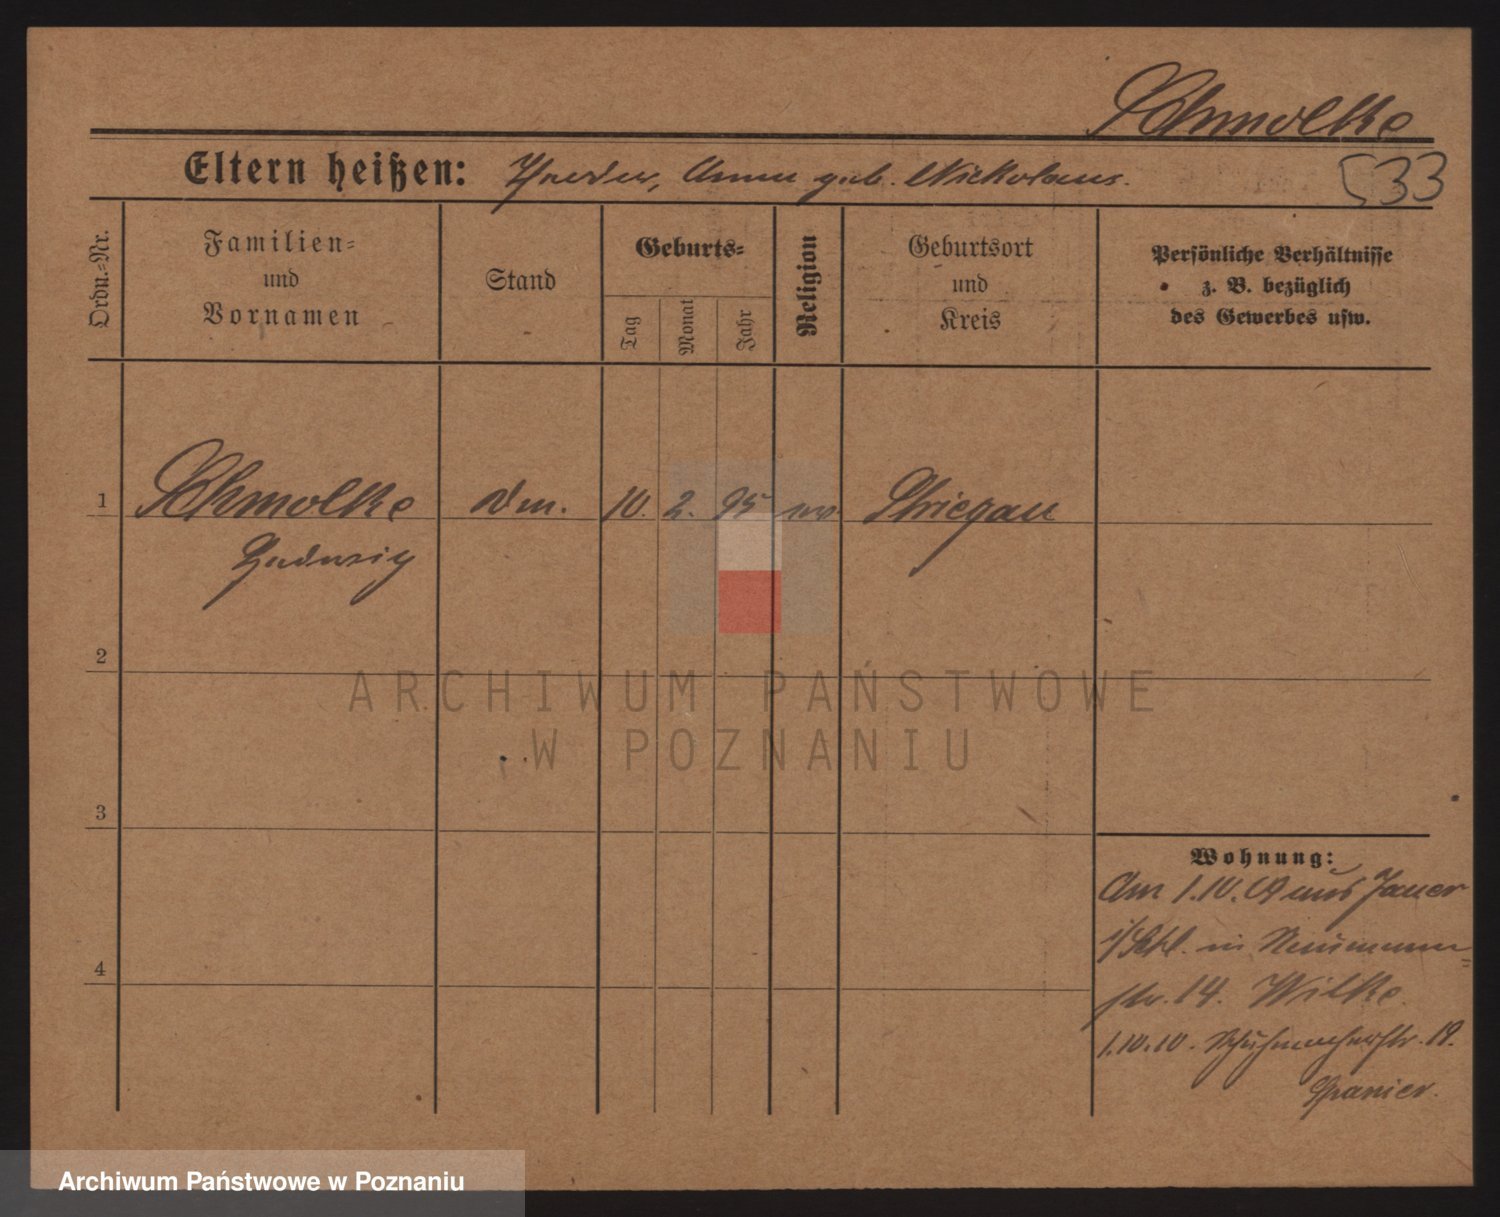 Schmolke
Eltern heißen: Anna geb. Nickolaus.
533
Ordn.=Nr.
Familien=
und
Vornamen
Stand
Geburts=
Tag
Monat
Jahr
Religion
Geburtsort
und
Kreis
Persönliche Verhältnisse
z. B. bezüglich
des Gewerbes usw.
1
Schmolke 10. 2. 95 ev Striegau
Hedwig
2
ARCHIWUM PAŃSTWOWE
W POZNANIU
3
4
Wohnung:
Am 1.10.09 aus Jauer
i/Schl. in Naumann=
str. 14. Wilke.
1.10.10. Schuhmacherstr. 19.
Spanier.
Archiwum Państwowe w Poznaniu